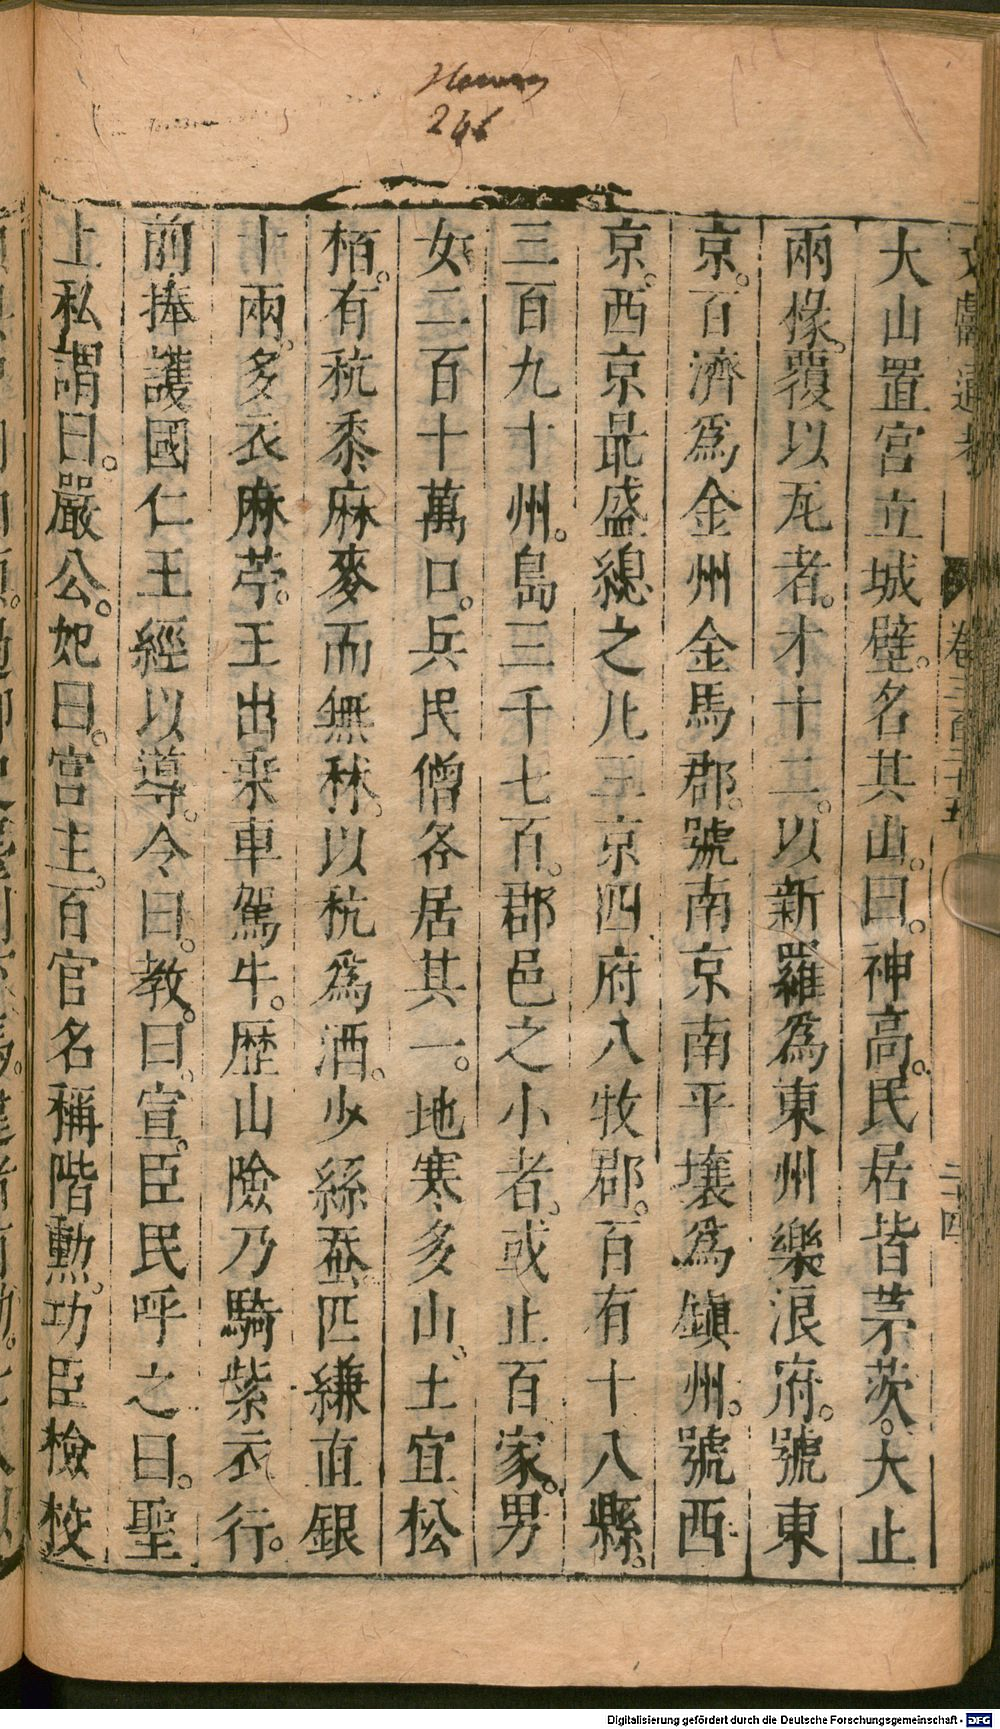 大山置宮立城壁名其山曰神高民居皆茅茨大止
兩椽覆以瓦者才十二以新羅為東州樂浪府號東
京百濟為金州金馬郡號南京南平壤為鎮州號西
京西京最盛總之凡三京四府八牧郡百有十八縣
三百九十州島三千七百郡邑之小者或止百家男
女二百十萬口兵民僧各居其一地寒多山土宜松
栢有秔黍麻麥而無秫以秔為酒少絲蚕匹縑直銀
十兩多衣麻苧王出乘車駕牛歷山險乃騎紫衣行
前捧護國仁王經以導令曰教曰宣臣民呼之曰聖
上私謂曰嚴公妃曰宮主百官名稱階勳功臣檢校
卷三百二十五
二十四
246
Digitalisierung gefördert durch die Deutsche Forschungsgemeinschaft - DFG